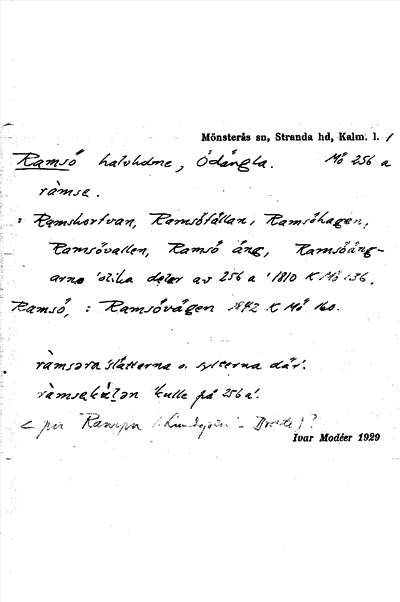 Mönsterås sn, Stranda hd, Kalm. l. /
Ramsö halvholme, Ödängla. Mö 256 a
ràmsa.
: Ramskorfvan, Ramsöfållan, Ramsöhagen,
Ramsövallen, Ramsö äng, Ramsöäng-
arne 'olika delar av 256 a' 1810 K Mö 136.
Ramsö, : Ramsövägen 1842 K Mö 160.
ràmsəra 'slåtterna o. sylterna där'.
'kulle på 256 a'.
<
Ivar Modéer 1929